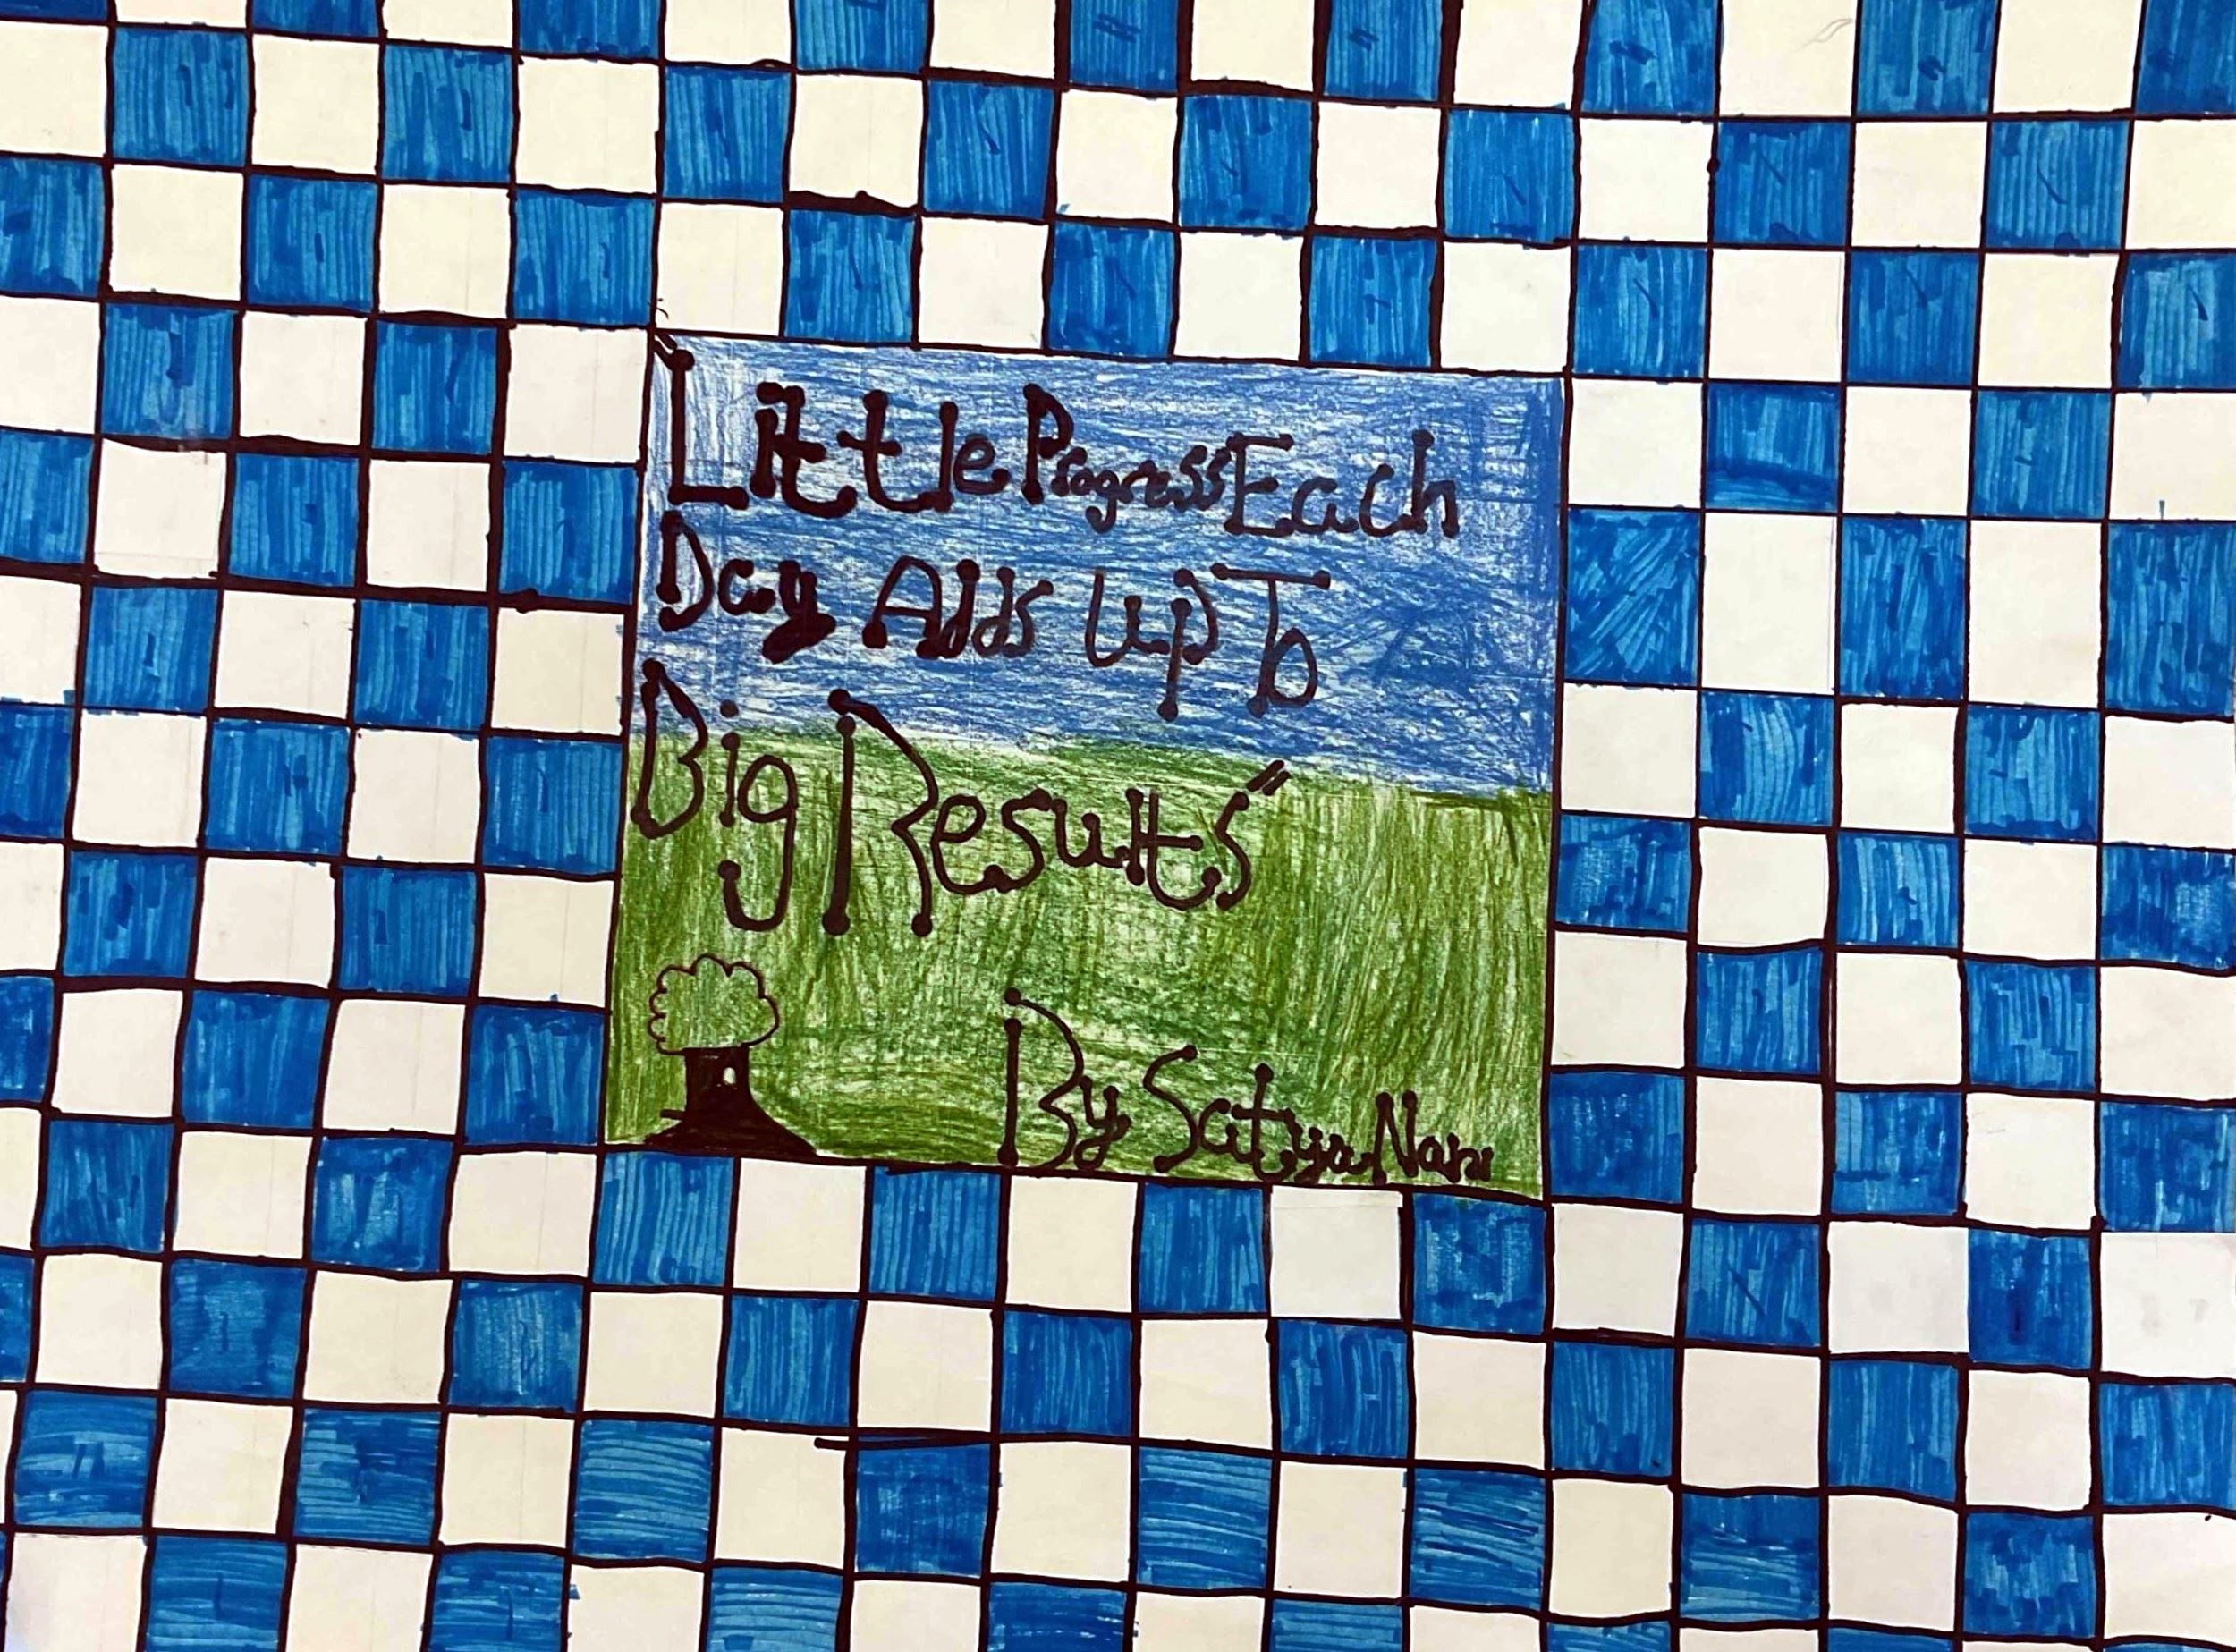 "Little Progress Each
Day Adds Up To
Big Results"
By Satya Nani